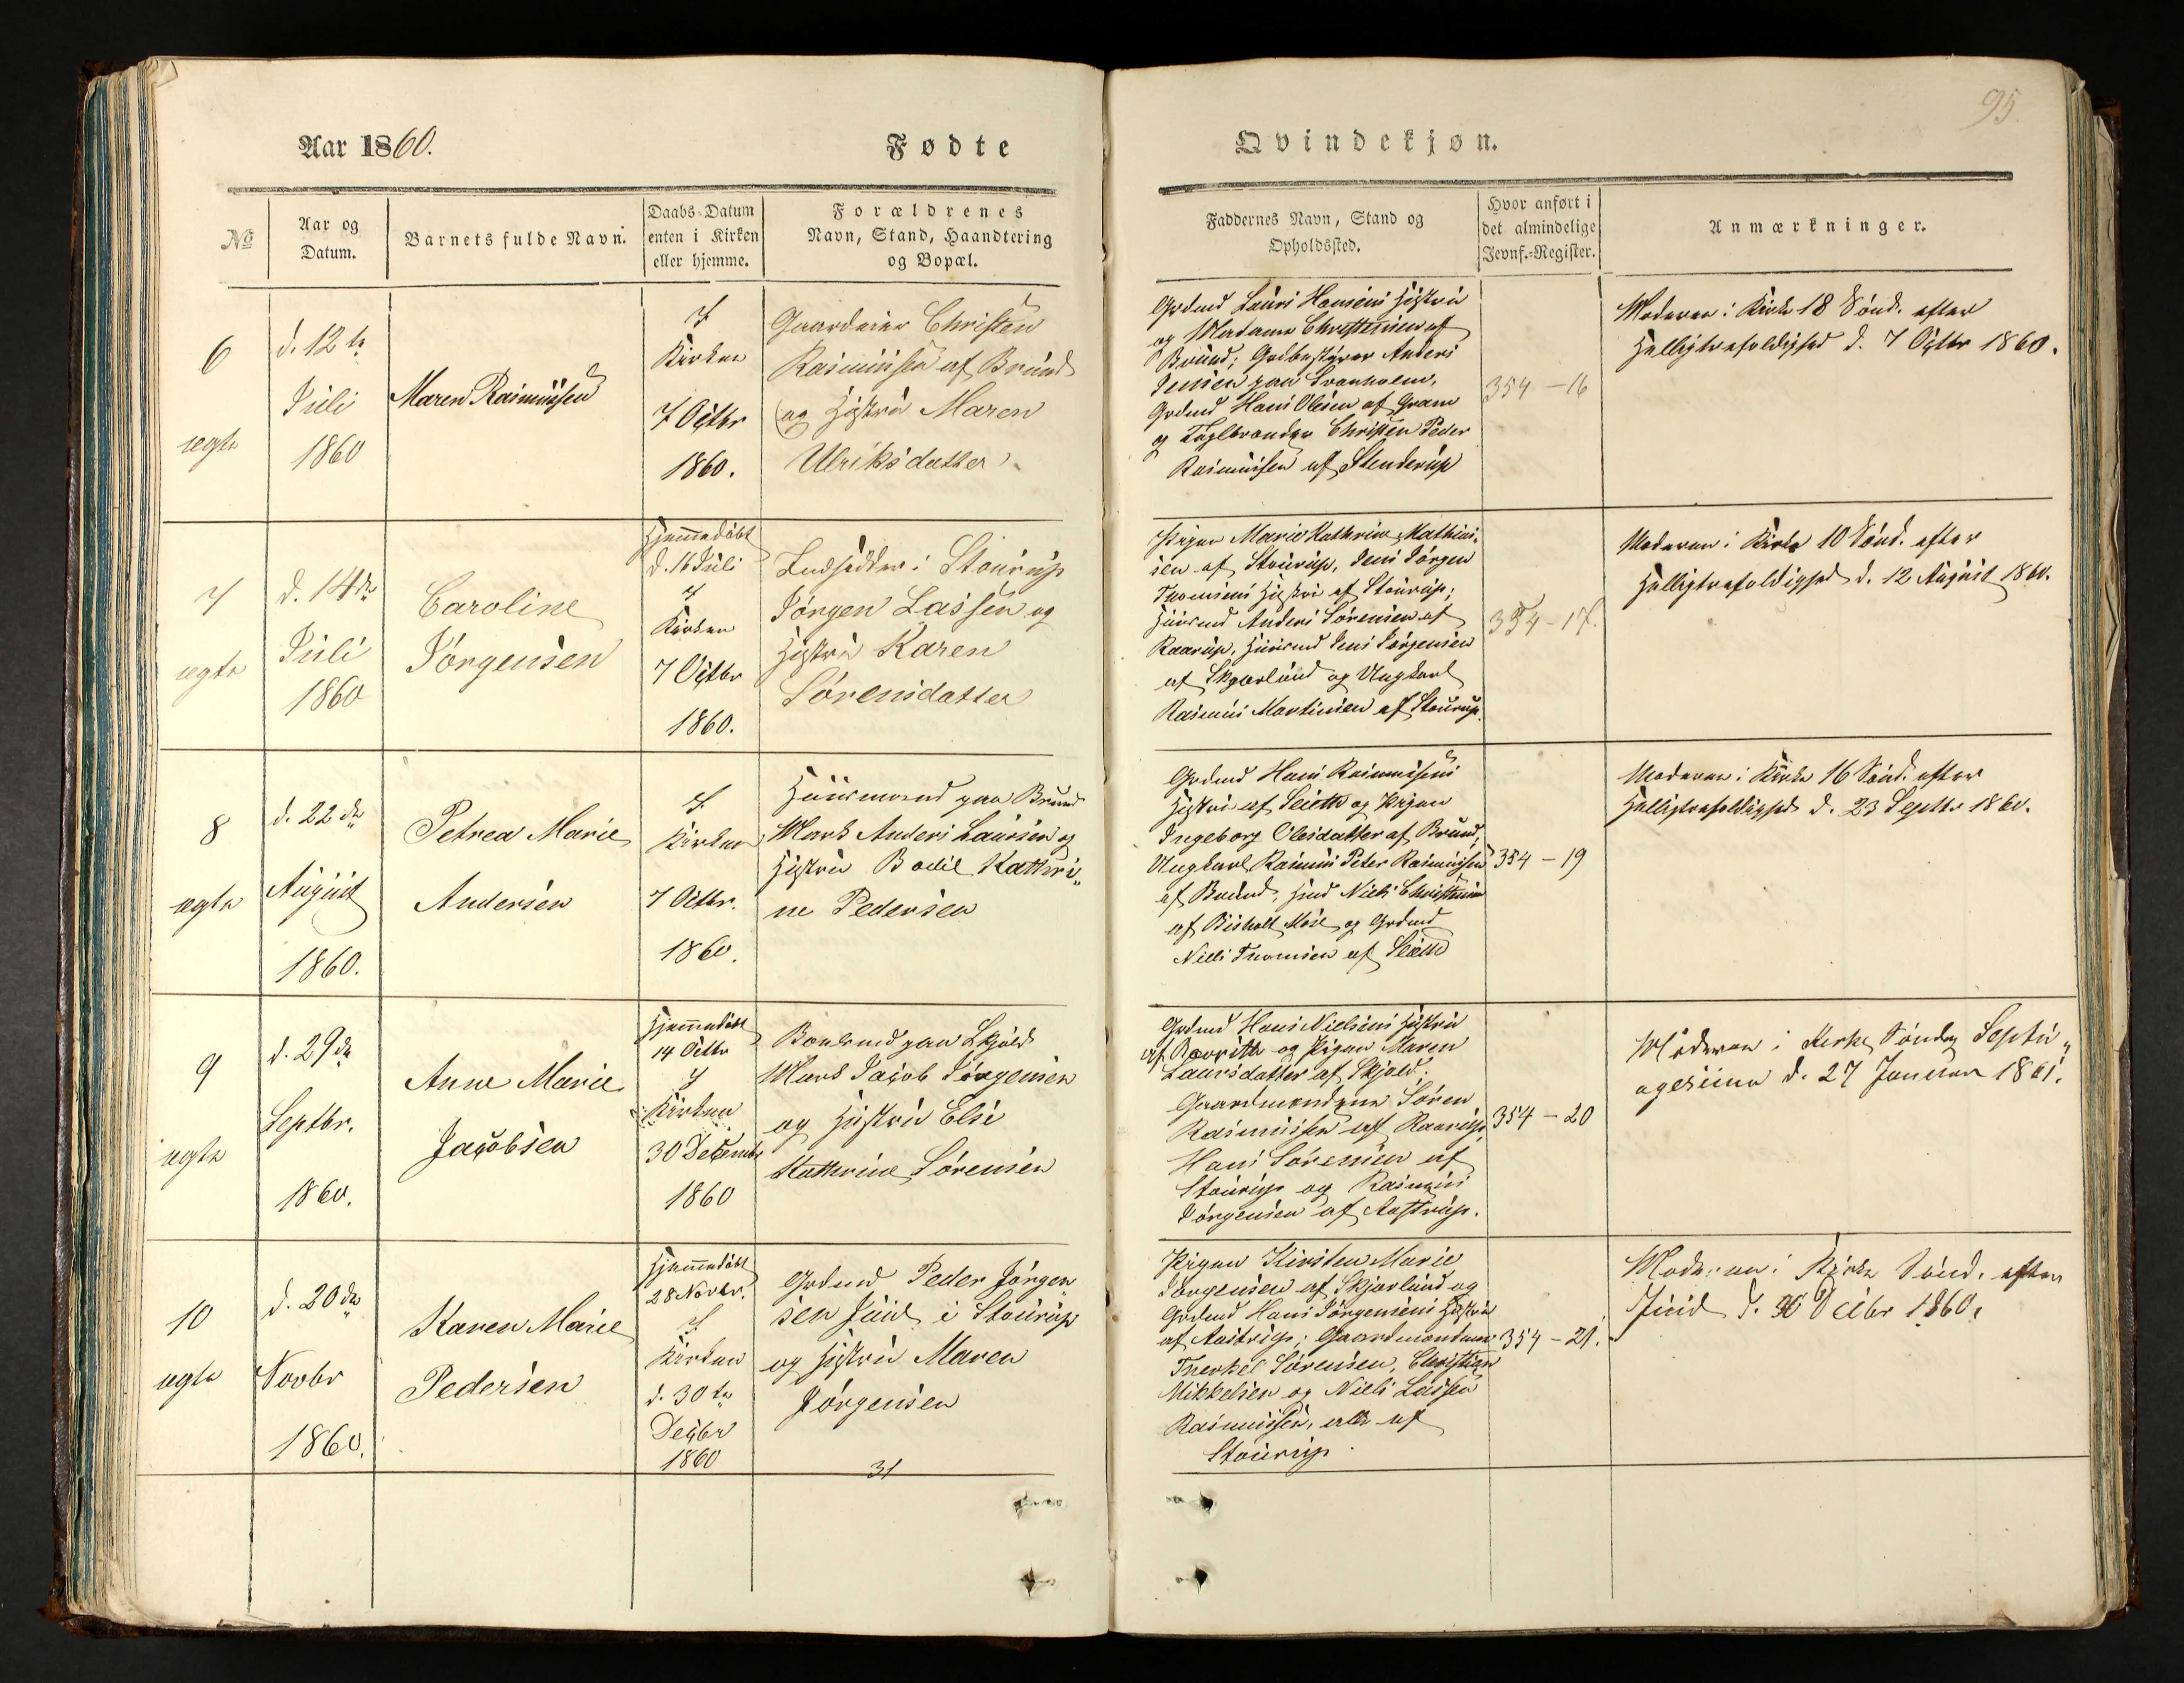 95.
Aar 1860.
Fødte
Qvindekjøn.
No
Aar og
Datum.
Barnets fulde Navn.
Daabs-Datum
enten i Kirken
eller hjemme.
Forældrenes
Navn, Stand, Haandtering
og Bopæl.
Faddernes Navn, Stand og
Opholdssted.
Hvor anført i
det almindelige
Jevnf.-Register.
Anmærkninger.
6
ægte
d. 12te
Juli
1860
Maren Rasmussen
I
Kirken
7 Octbr
1860.
Gaardeier Christen
Rasmussen af Brund
og Hustru Maren
Ulriksdatter
Grdmd Laurs Hansens Hustru
og Madame Christensen af
Brund; Grdbestyrer Anders
Jensen paa
Grdmd Hans Olesen af Gram
og Christen Peder
Rasmussen af Stenderup
354 - 16
Moderen i Kirke 18 Sønd. efter
Helligtrefoldighed d. 7 Octbr 1860.
7
ægte
d. 14de
Juli
1860
Caroline
Jørgensen
Hjemmedøbt
d. 16 Juli
I
Kirken
7 Octbr
1860.
Indsidder i Stourup
Jørgen Lassen og
Hustru Karen
Sørensdatter
Pigen Marie Kathrine Mathias-
sen af Stourup, Jens Jørgen
Thomsens Hustru af Stourup;
Huusmd Anders Sørensen af
Raarup, Huusmd Jens Jørgensen
af Skjærlund og Ungkarl
Rasmus Mortensen af Stourup.
354 - 17.
Moderen i Kirke 10 Sønd. efter
Helligtrefoldighed d. 12 August 1860.
8
ægte
d. 22de
August
1860.
Petrea Marie
Andersen
I
Kirken
7 Octbr.
1860.
Huusmand paa Brund
Mark Anders Laursen og
Hustru Bodil Kathri„
ne Pedersen
Grdmd Hans Rasmussens
Hustru af Sleeth og Pigen
Ingeborg Olesdatter af Brund;
Ungkarl Rasmus Peter Rasmussen
af Brund, Hmd Niels Christensen
af Bisholt Mose og Grdmd
Niels Thomsen af Sleeth
354 - 19
Moderen i Kirke 16 Sønd. efter
Helligtrefoldighed d. 23 Septbr 1860.
9
ægte
d. 29de
Septbr.
1860.
Anne Marie
Jacobsen
Hjemmedøbt
14 Octbr
I
Kirken
30 Decembr
1860
Boelsmd paa Skjold
Mark Jacob Jørgensen
og Hustru Else
Kathrine Sørensen
Grdmd Hans Nielsens Hustru
af Raarith og Pigen Maren
Laursdatter af Skjold.
Gaardmændene Søren
Rasmussen af Raarup,
Hans Sørensen af
Stourup og Rasmus
Jørgensen af Aastrup.
354 - 20
Moderen i Kirke Søndag Septu„
agesima d. 27 Januar 1861.
10
ægte
d. 20de
Novbr
1860.
Karen Marie
Pedersen
Hjemmedøbt
28 Novbr.
I
Kirken
d. 30te
Decbr
1860
Grdmd Peder Jørgen„
sen Juul i Stourup
og Hustru Maren
Jørgensen
31
Pigen Kirsten Marie
Jørgensen af Skjærlund og
Grdmd Hans Jørgensens Hustru
af Aastrup; Gaardmændene
Therkel Sørensen, Christian
Mikkelsen og Niels Lassen
Rasmussen, alle af
Stourup.
354 - 21.
Moderen i Kirke Sønd. efter
Juul d. 30 Decbr 1860.